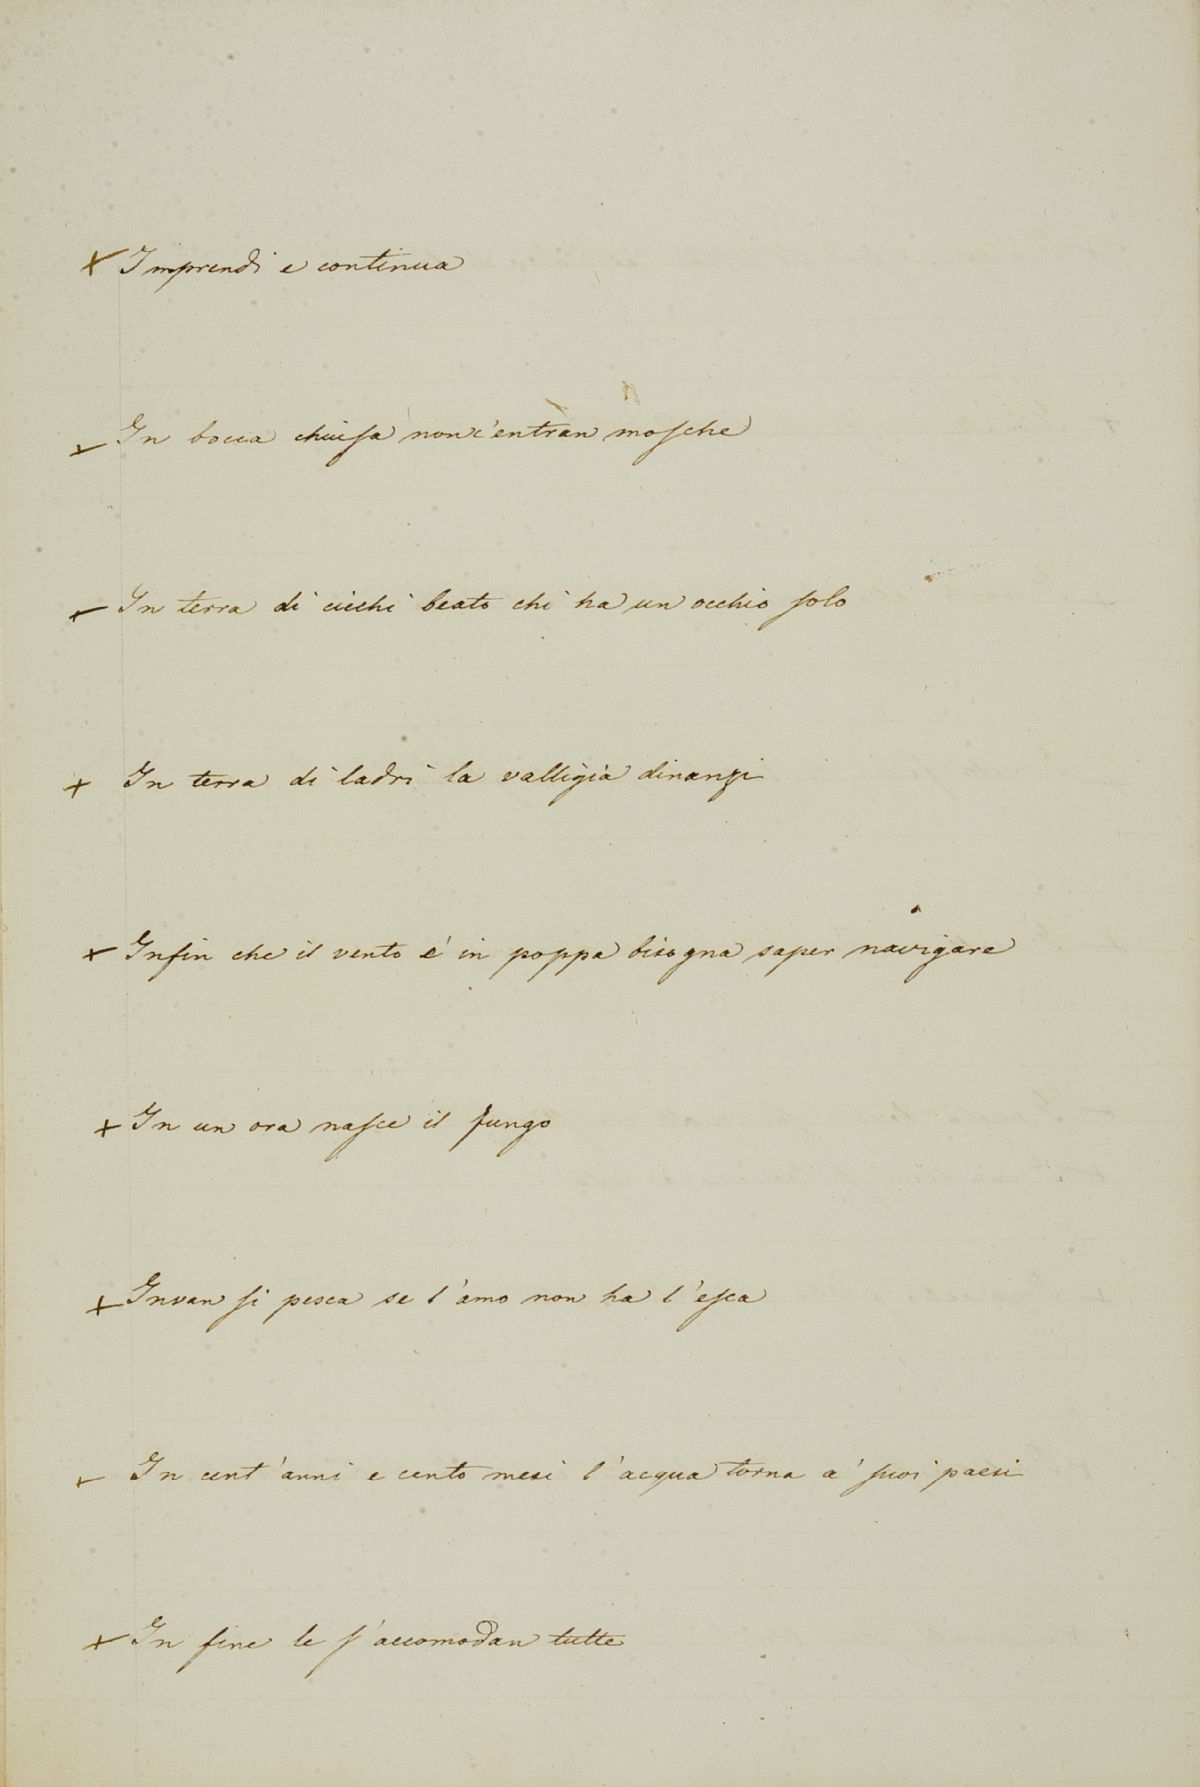 Imprendi e continua
In bocca chiusa non c'entran mosche
In terra di ciechi beato chi ha un occhio solo
In terra di ladri la valligia dinanzi
Infin che il vento é in poppa bisogna saper navigare
In un ora nasce il fungo
Invan si pesca se l'amo non ha l'esca
In cent'anni e cento mesi l'acqua torna a' suoi paesi
In fine le s'accomodan tutte